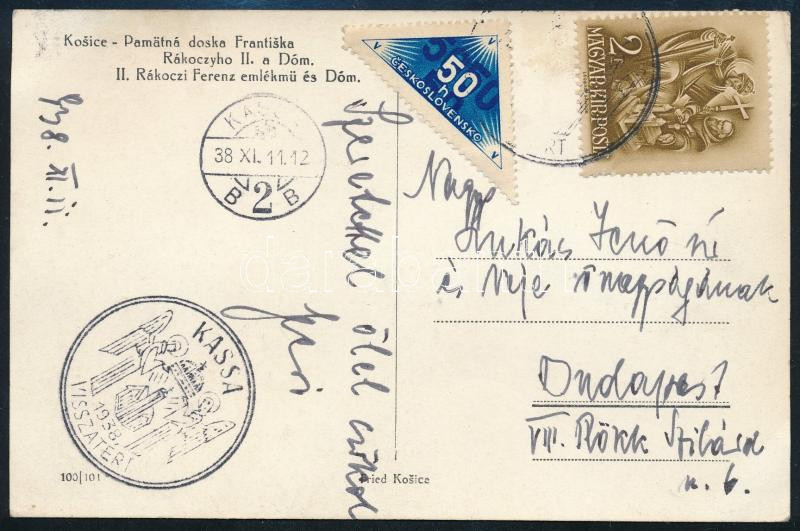 Košice - Pamätná doska Františka
Rákoczyho II. a Dóm.
II. Rákoczi Ferenz emlékmü és Dóm.
938. XI. 11.
KASSA
38 XI. 11. 12
B 2 B
50 h
ČESKOSLOVENSKO
2
MAGYAR KIR. POSTA
Szeretettel ölel csókol
Jenő
Nagys
Lukás Jenő
és Neje őnagyságának
Budapest
VIII. Rökk Szilárd
u. 6.
KASSA
1938.
VISSZATÉRT
100/101
Fried Košice
darabanth